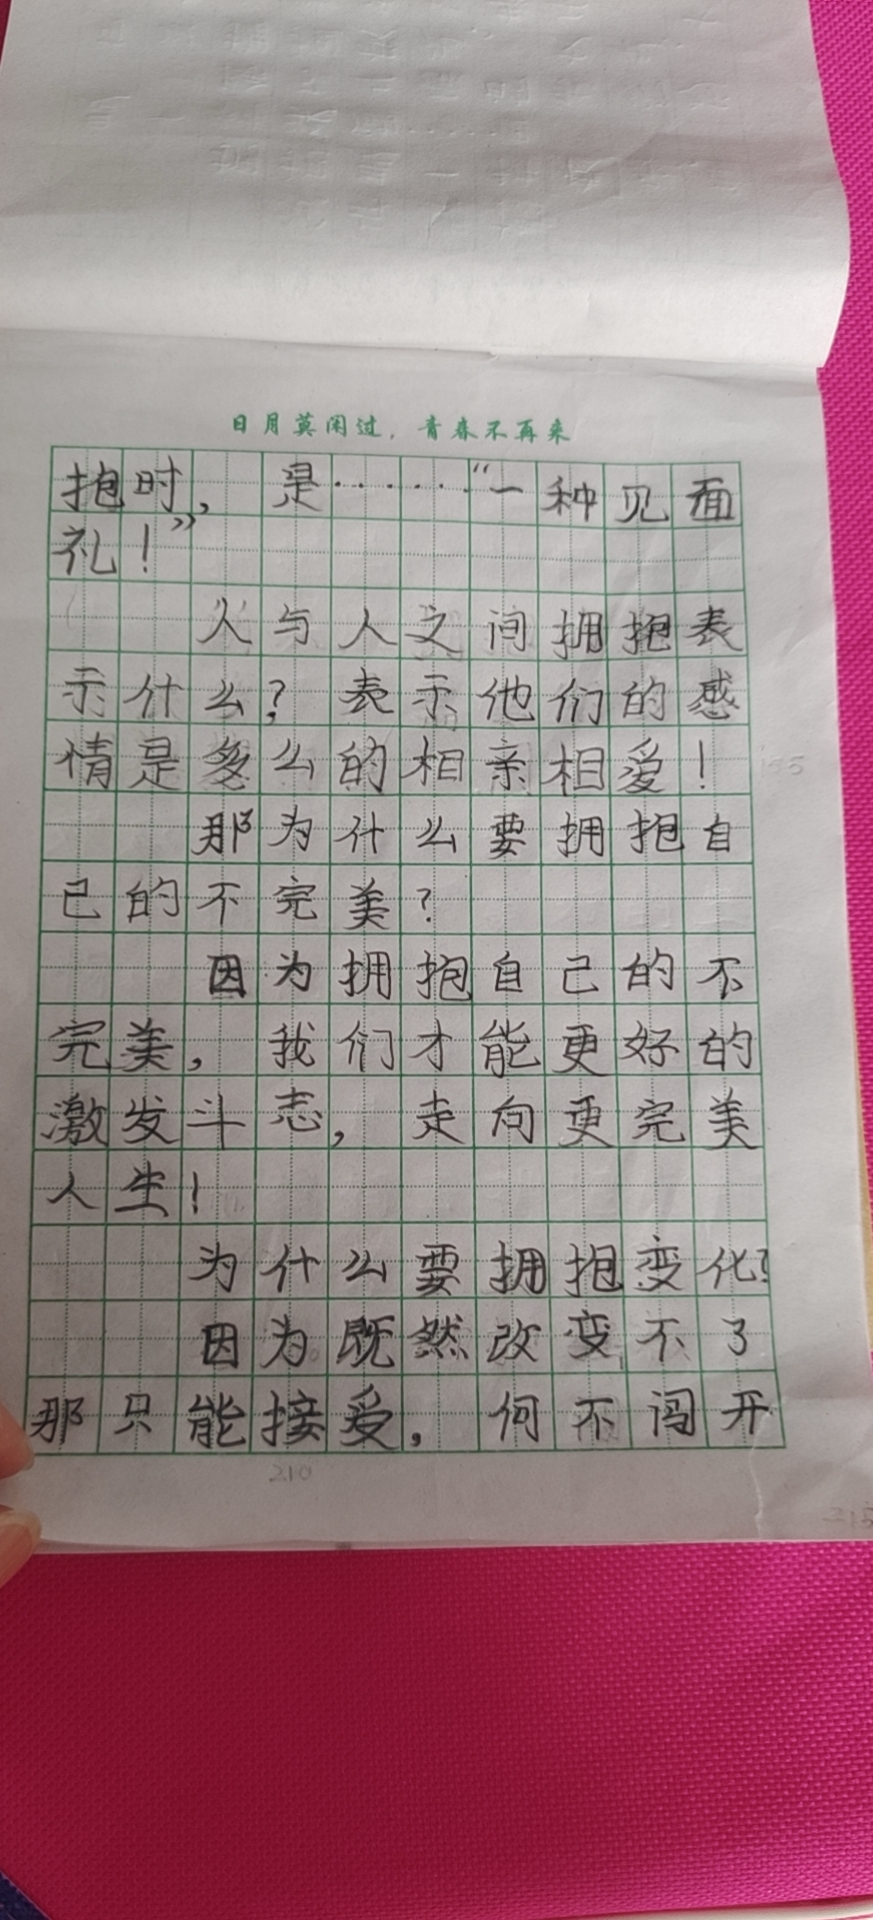 日月莫闲过，青春不再来
抱时，是……“一种见面
礼！”
人与人之间拥抱表
示什么？表示他们的感
情是多么的相亲相爱！
那为什么要拥抱自
己的不完美？
因为拥抱自己的不
完美，我们才能更好的
激发斗志，走向更完美
人生！
为什么要拥抱变化？
因为既然改变不了
那只能接受，何不闯开
210